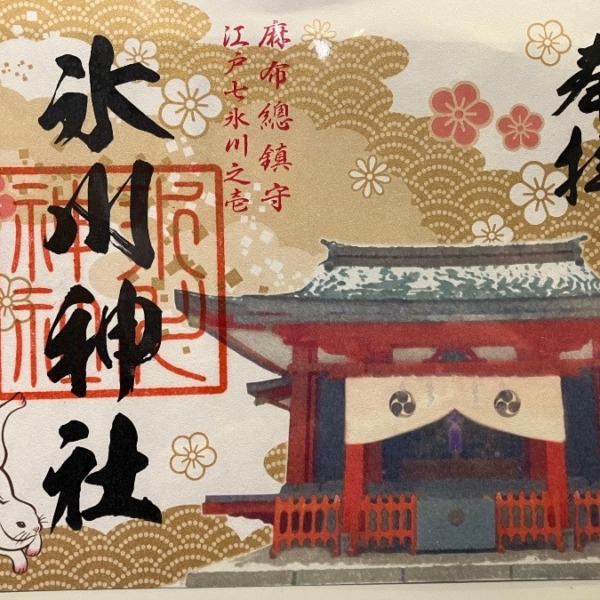 奉拝
麻布總鎮守
江戸七氷川之壱
氷川神社